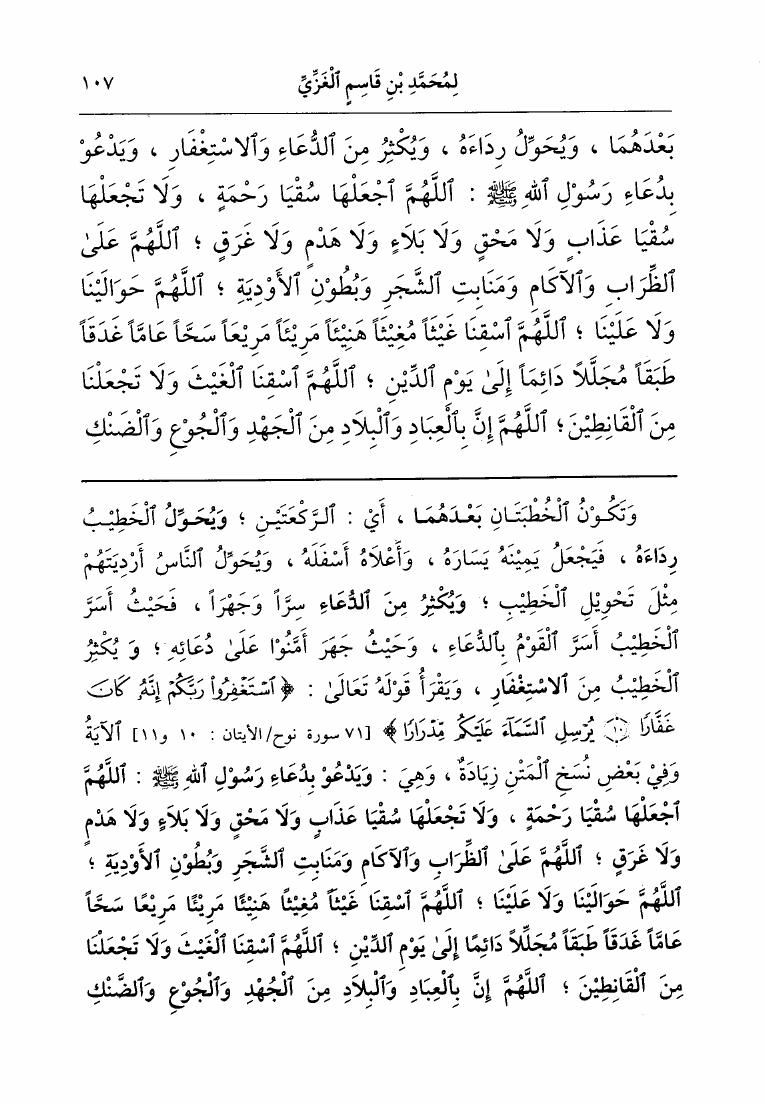 لِمُحَمَّدِ بْنِ قَاسِمٍ ٱلْغَزِّيِّ ١٠٧
بَعْدَهُمَا ، وَيُحَوِّلُ رِدَاءَهُ ، وَيُكْثِرُ مِنَ ٱلدُّعَاءِ وَٱلاسْتِغْفَارِ ، وَيَدْعُوْ
بِدُعَاءِ رَسُوْلِ ٱللهِ ﷺ : ٱللَّهُمَّ ٱجْعَلْهَا سُقْيَا رَحْمَةٍ ، وَلَا تَجْعَلْهَا
سُقْيَا عَذَابٍ وَلَا مَحْقٍ وَلَا بَلَاءٍ وَلَا هَدْمٍ وَلَا غَرَقٍ ؛ ٱللَّهُمَّ عَلَىٰ
ٱلظِّرَابِ وَٱلآكَامِ وَمَنَابِتِ ٱلشَّجَرِ وَبُطُوْنِ ٱلأَوْدِيَةِ ؛ ٱللَّهُمَّ حَوَالَيْنَا
وَلَا عَلَيْنَا ؛ ٱللَّهُمَّ ٱسْقِنَا غَيْثَاً مُغِيْثَاً هَنِيْئَاً مَرِيْئَاً مَرِيْعَاً سَحَّاً عَامَّاً غَدَقَاً
طَبَقَاً مُجَلَّلاً دَائِمَاً إِلَىٰ يَوْمِ ٱلدِّيْنِ ؛ ٱللَّهُمَّ ٱسْقِنَا ٱلْغَيْثَ وَلَا تَجْعَلْنَا
مِنَ ٱلْقَانِطِيْنَ ؛ ٱللَّهُمَّ إِنَّ بِٱلْعِبَادِ وَٱلْبِلَادِ مِنَ ٱلْجَهْدِ وَٱلْجُوْعِ وَٱلْضَنْكِ
وَتَكُوْنُ ٱلْخُطْبَتَانِ بَعْدَهُمَا ، أَيْ : ٱلرَّكْعَتَيْنِ ؛ وَيُحَوِّلُ ٱلْخَطِيْبُ
رِدَاءَهُ ، فَيَجْعَلُ يَمِيْنَهُ يَسَارَهُ ، وَأَعْلَاهُ أَسْفَلَهُ ، وَيُحَوِّلُ ٱلنَّاسُ أَرْدِيَتَهُمْ
مِثْلَ تَحْوِيْلِ ٱلْخَطِيْبِ ؛ وَيُكْثِرُ مِنَ ٱلدُّعَاءِ سِرَّاً وَجَهْرَاً ، فَحَيْثُ أَسَرَّ
ٱلْخَطِيْبُ أَسَرَّ ٱلْقَوْمُ بِٱلدُّعَاءِ ، وَحَيْثُ جَهَرَ أَمَّنُوْا عَلَىٰ دُعَائِهِ ؛ وَ يُكْثِرُ
ٱلْخَطِيْبُ مِنَ ٱلاسْتِغْفَارِ ، وَيَقْرَأُ قَوْلَهُ تَعَالَىٰ : ﴿ ٱسْتَغْفِرُوا۟ رَبَّكُمْ إِنَّهُۥ كَانَ
غَفَّارًا ۝١٠ يُرْسِلِ ٱلسَّمَآءَ عَلَيْكُم مِّدْرَارًا ﴾ [٧١ سورة نوح/الأيتان : ١٠ و١١] ٱلآيَةُ
وَفِيْ بَعْضِ نُسَخِ ٱلْمَتْنِ زِيَادَةٌ ، وَهِيَ : وَيَدْعُوْ بِدُعَاءِ رَسُوْلِ ٱللهِ ﷺ : ٱللَّهُمَّ
ٱجْعَلْهَا سُقْيَا رَحْمَةٍ ، وَلَا تَجْعَلْهَا سُقْيَا عَذَابٍ وَلَا مَحْقٍ وَلَا بَلَاءٍ وَلَا هَدْمٍ
وَلَا غَرَقٍ ؛ ٱللَّهُمَّ عَلَىٰ ٱلظِّرَابِ وَٱلآكَامِ وَمَنَابِتِ ٱلشَّجَرِ وَبُطُوْنِ ٱلأَوْدِيَةِ ؛
ٱللَّهُمَّ حَوَالَيْنَا وَلَا عَلَيْنَا ؛ ٱللَّهُمَّ ٱسْقِنَا غَيْثَاً مُغِيْثَاً هَنِيْئًا مَرِيْئًا مَرِيْعًا سَحَّاً
عَامَّاً غَدَقَاً طَبَقَاً مُجَلِّلاً دَائِمًا إِلَىٰ يَوْمِ ٱلدِّيْنِ ؛ ٱللَّهُمَّ ٱسْقِنَا ٱلْغَيْثَ وَلَا تَجْعَلْنَا
مِنَ ٱلْقَانِطِيْنَ ؛ ٱللَّهُمَّ إِنَّ بِٱلْعِبَادِ وَٱلْبِلَادِ مِنَ ٱلْجُهْدِ وَٱلْجُوْعِ وَٱلضَّنْكِ